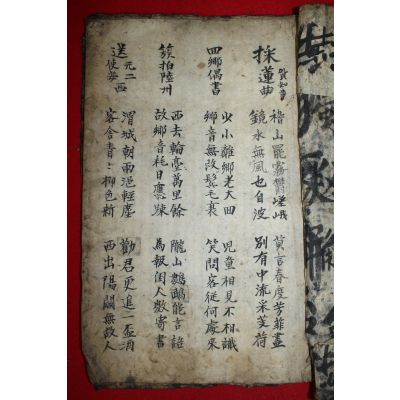 採蓮曲 賀知章
稽山罷霧鬱嵯峨
鏡水無風也自波
莫言春度芳菲盡
別有中流采芰荷
囬鄉偶書
少小離鄉老大囬
鄉音無改鬢毛衰
児童相見不相識
笑問客從何處來
簇拍陸州
西去輪臺萬里餘
故鄉音耗日應踈
隴山鸚鵡能言語
為報閨人數寄書
送元二使安西
渭城朝雨浥輕塵
客舍青〻柳色新
勸君更進一盃酒
西出陽關無故人